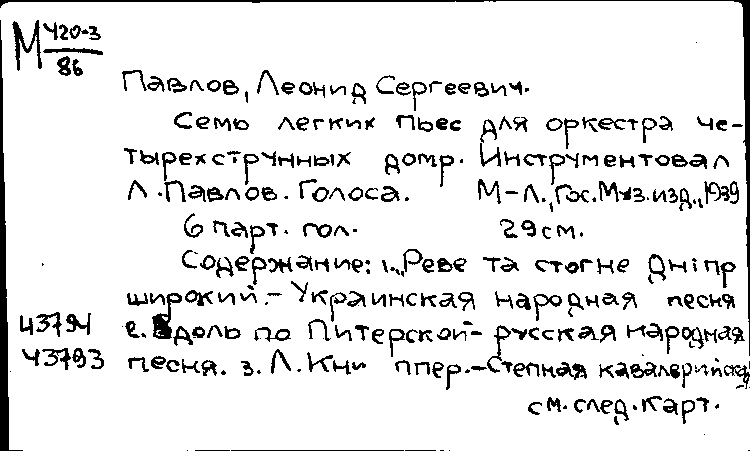 М 420-3
86
Павлов, Леонид Сергеевич.
Семь легких пьес для оркестра че-
тырехструнных домр. Инструментовал
Л. Павлов. Голоса. М-Л., Гос. Муз. изд., 1939
6 парт. гол. 29 см.
Содержание: 1. „Реве та стогне Дніпр
широкий. - Украинская народная песня
43794 2. Вдоль по Питерской - русская народная
43793 песня. 3. Л. Книппер. - Степная кавалерийская
см. след. карт.